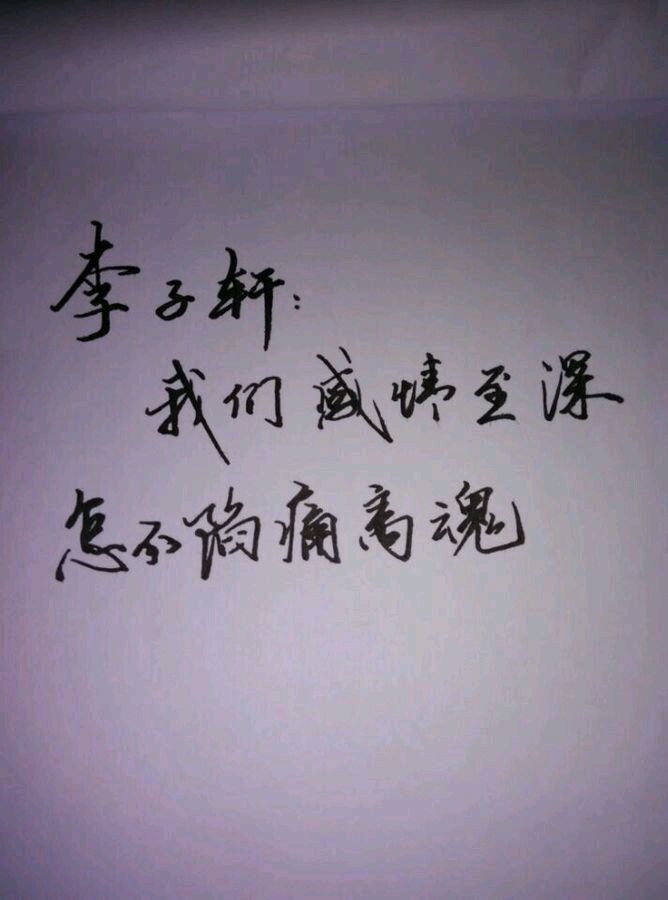 李子轩:
我们感情至深
怎不陷痛离魂